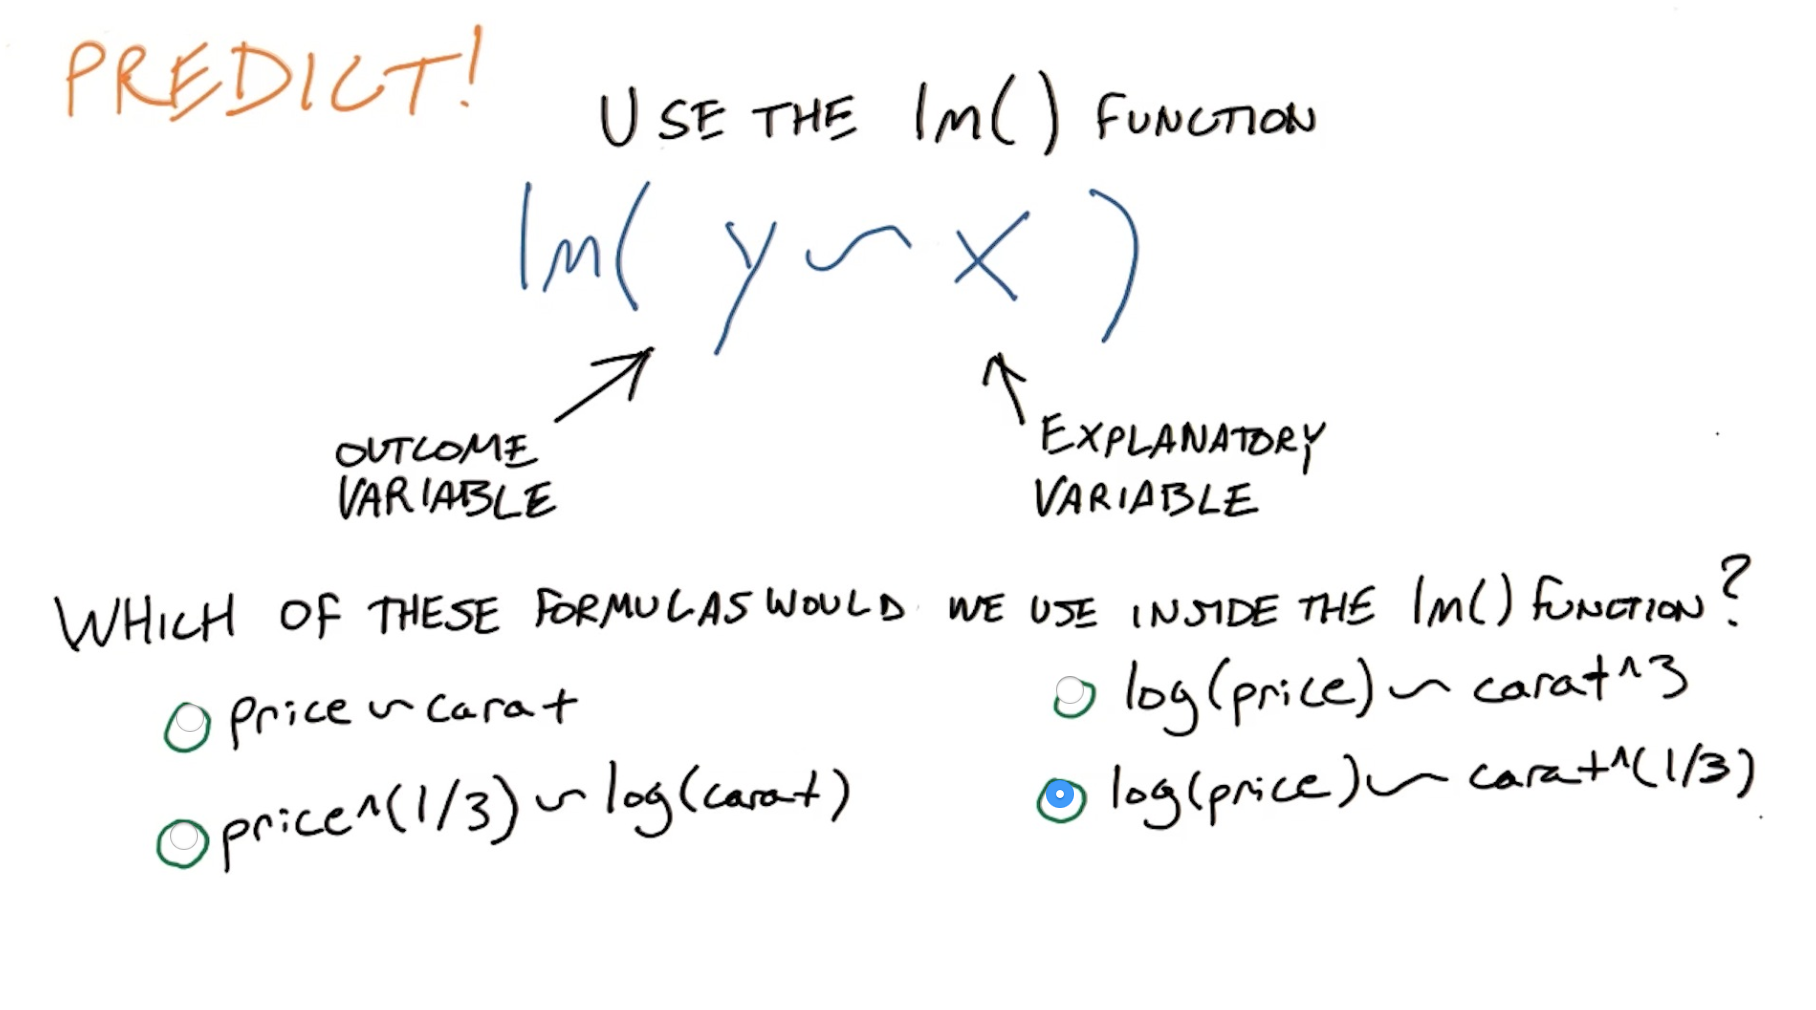 PREDICT!
USE THE lm() FUNCTION
lm( y ~ x )
OUTCOME
VARIABLE
EXPLANATORY
VARIABLE
WHICH OF THESE FORMULAS WOULD WE USE INSIDE THE lm() FUNCTION?
price ~ carat
log(price) ~ carat^3
price^(1/3) ~ log(carat)
log(price) ~ carat^(1/3)